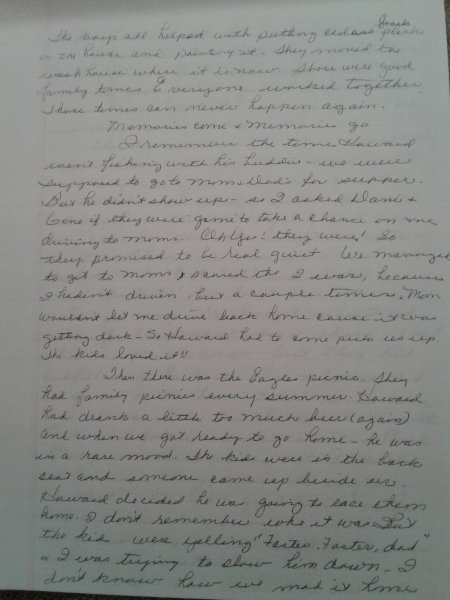 boards
The boys all helped with putting cedar planks
on the house and painting it. They moved the
wash house where it is now. Those were good
family times. Everyone worked together.
Those times can never happen again.
Memories come & Memories go.
I remember the time Howard
went fishing with his buddies - we were
supposed to go to Mom & Dads for supper.
But he didn't show up - so I asked Danis &
Gene if they were game to take a chance on me
driving to moms. Oh Yes! they were! So
they promised to be real quiet. We managed
to get to Moms, scared tho I was, because
I hadn't driven but a couple times. Mom
wouldn't let me drive back home cause it was
getting dark - So Howard had to come pick us up.
The kids loved it!!
Then there was the Eagles picnic. They
had family picnics every summer. Howard
had drank a little too much beer (again)
and when we got ready to go home - he was
in a rare mood. The kids were in the back
seat and someone came up beside us.
Howard decided he was going to race them
home. I don't remember who it was But
the kids were yelling "Faster, Faster, dad"
& I was trying to slow him down. I
don't know how we mad it home